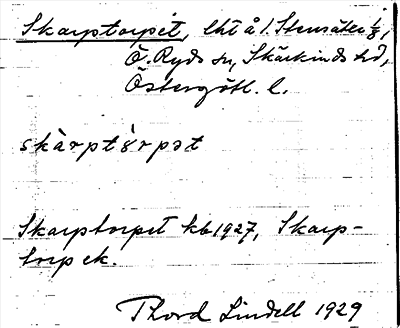 Skarptorpet, lht å 1. Stensäter 1/8,
Ö. Ryds sn, Skärkinds hd,
Östergötl. l.
skàrptòrpət
Skarptorpet kb 1927, Skarp-
torp ek.
Thord Lindell 1929